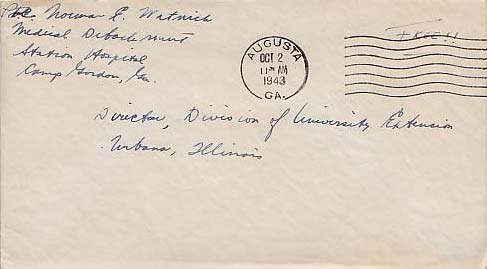 Pfc. Norman E. Watnick
Medical Detachment
Station Hospital
Camp Gordon, Ga.
FREE!!
AUGUSTA
OCT 2
11 30 AM
1943
GA.
Director, Division of University Extension
Urbana, Illinois